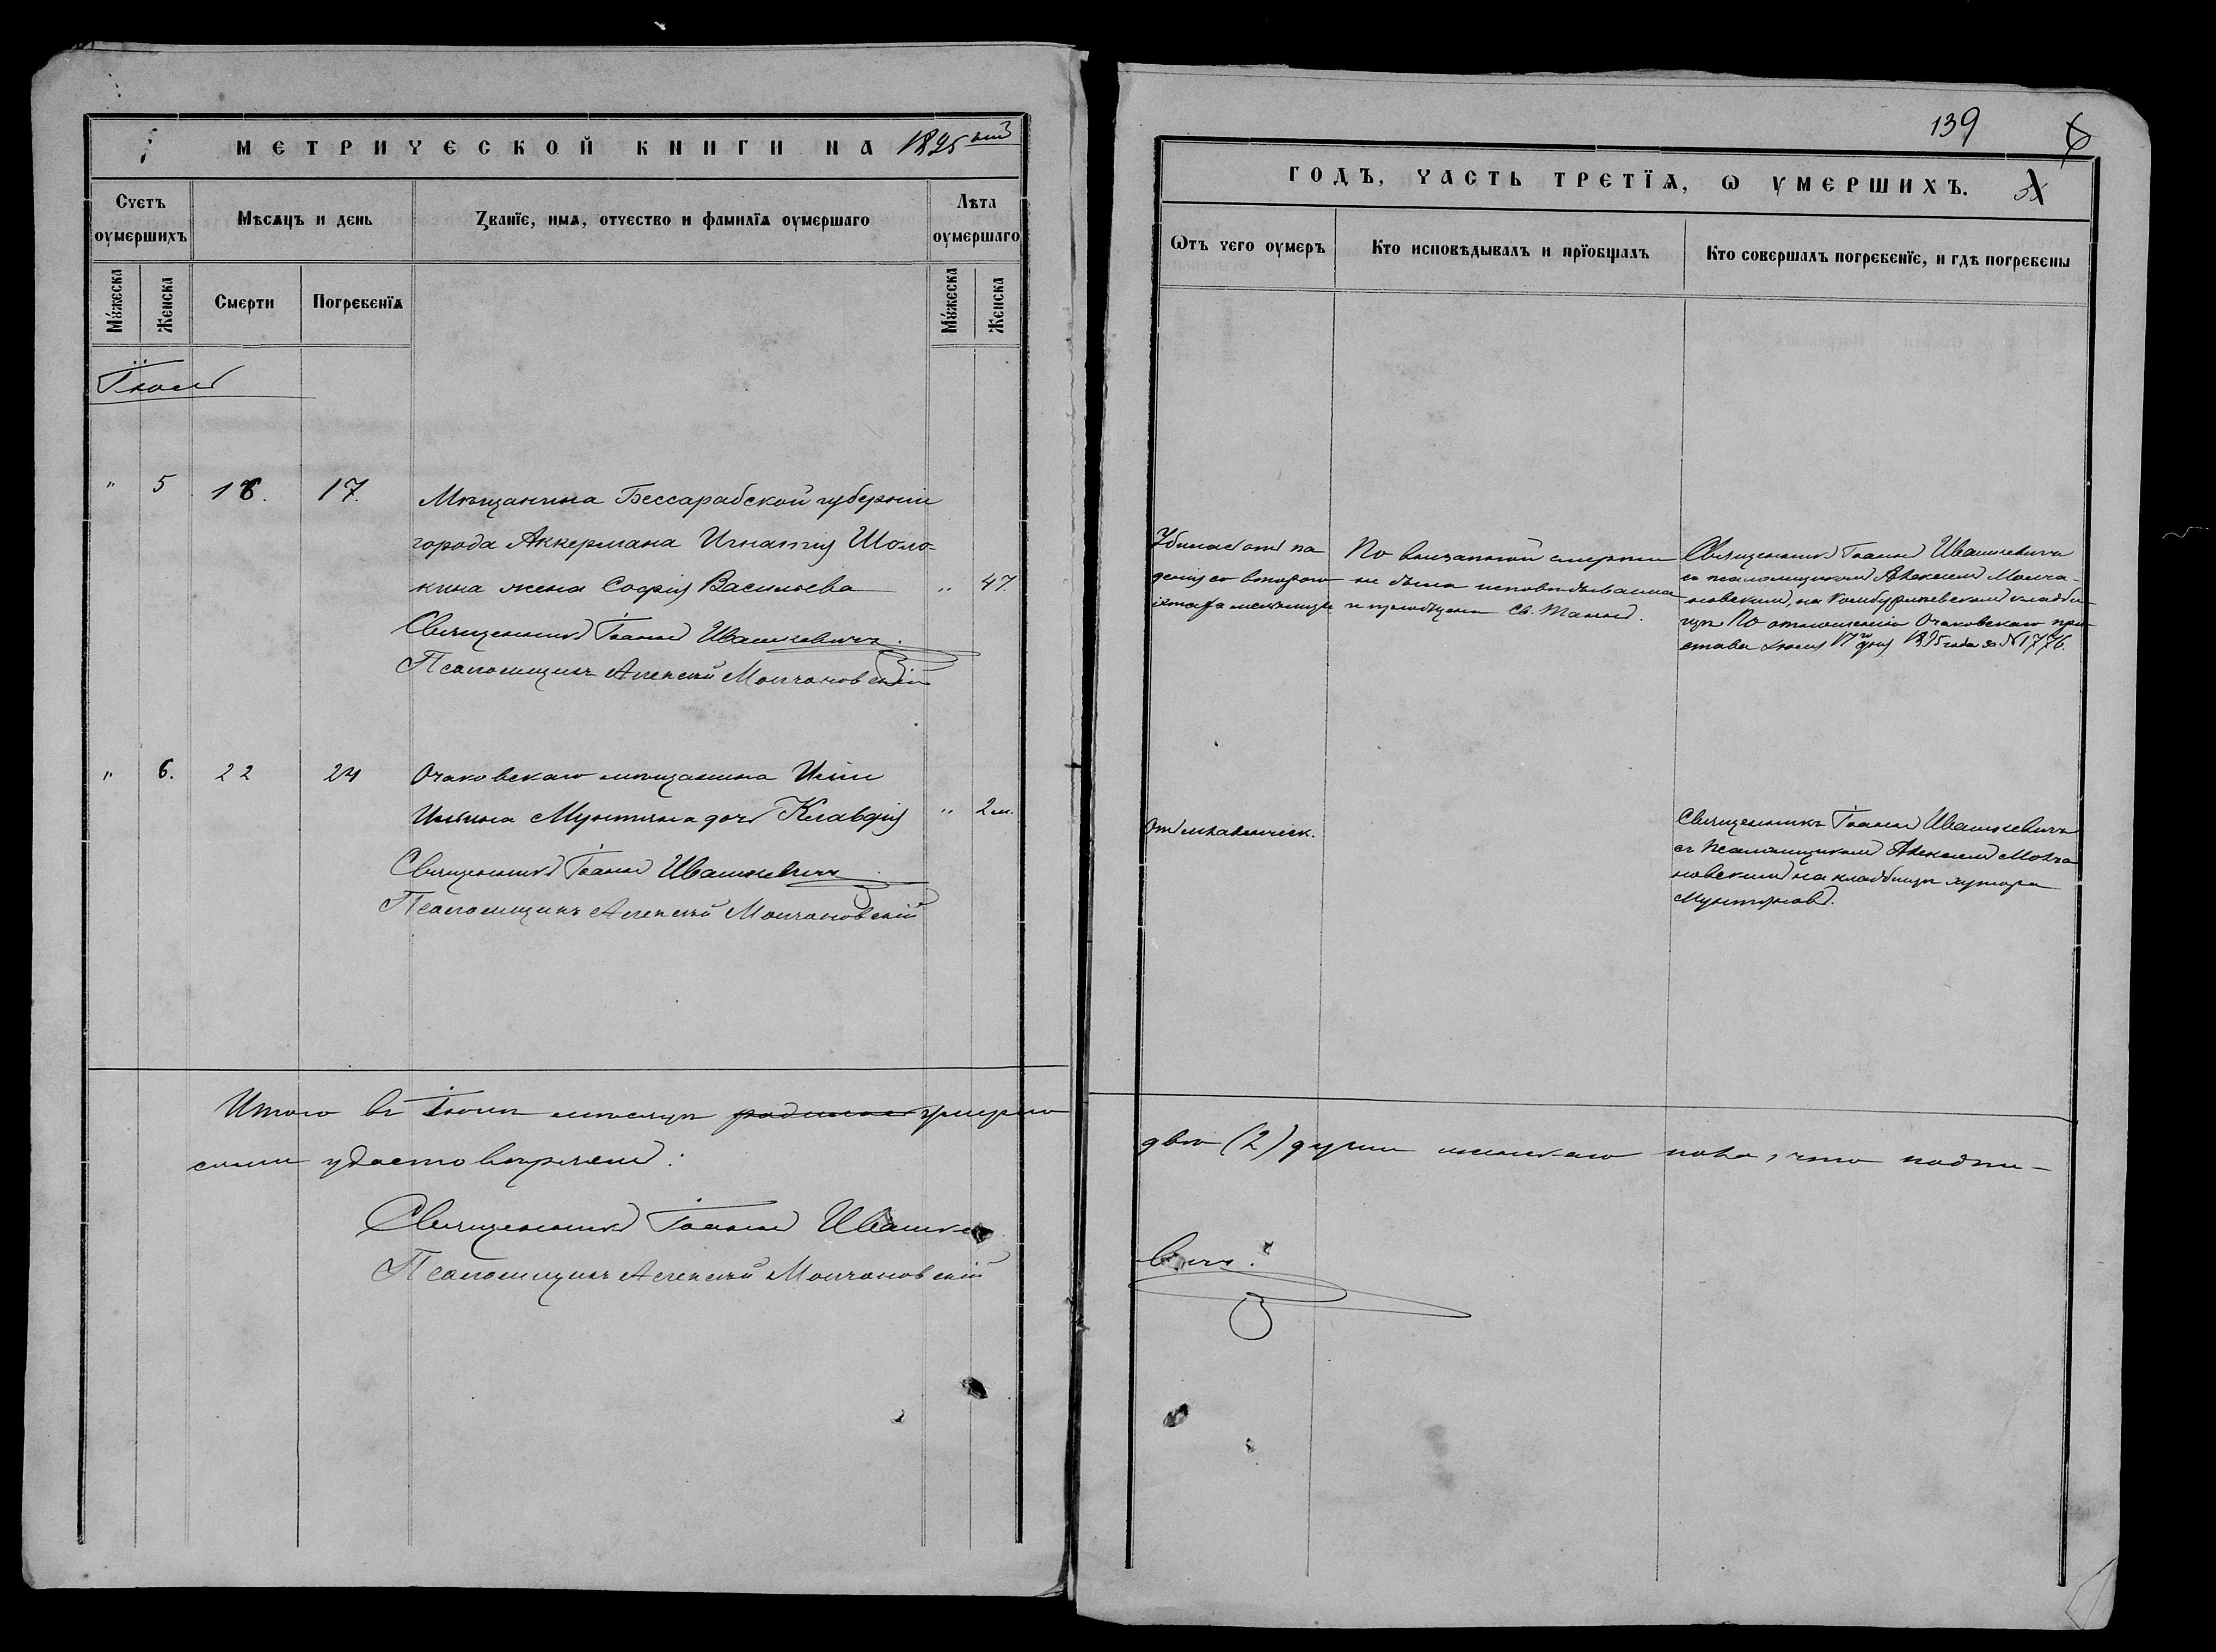 МЕТРИЧЕСКОЙ КНИГИ НА 1895 ый
Счетъ оумершихъ
Мѣсяцъ и день
Званіе, имя, отчество и фамилія оумершаго
Лѣта оумершаго
Мужеска
Женска
Смерти
Погребенія
Мужеска
Женска
Іюль
" 5 16. 17. Мѣщанина Бессарабской губерніи
города Аккермана Игнатія Шоло-
кина жена Софія Васильева " 47.
Священникъ Іоаннъ Ивашкевичъ.
Псаломщикъ Алексѣй Молчановскій
" 6. 22 24 Очаковскаго мѣщанина Иліи
Ильина Мунтяна дочь Клавдія " 2 м.
Священникъ Іоаннъ Ивашкевичъ
Псаломщикъ Алексѣй Молчановскій
Итого въ мѣсяцѣ родилось умерло
симъ удостовѣряемъ:
Священникъ Іоаннъ Ивашке
Псаломщикъ Алексѣй Молчановскій
139
ГОДЪ, ЧАСТЬ ТРЕТІЯ, Ѡ УМЕРШИХЪ.
Ѡтъ чего оумеръ
Кто исповѣдывалъ и пріобщалъ
Кто совершалъ погребеніе, и гдѣ погребены
Убилась отъ па
денія со второго
этажа мельницы
По внезапной смерти
не была исповѣдываема
и пріобщена Св. Таинъ.
Священникъ Іоаннъ Ивашкевичъ
съ псаломщикомъ Алексѣемъ Молча-
новскимъ, на кладби-
щѣ По отношенію Очаковскаго при-
става 17го дня 1895 года за № 1776.
От младенческ.
Священникъ Іоаннъ Ивашкевичъ
съ Псаломщикомъ Алексѣемъ Молча
новскимъ на кладбищѣ хутора
двѣ (2) души женскаго пола, что подпи-
вичъ.